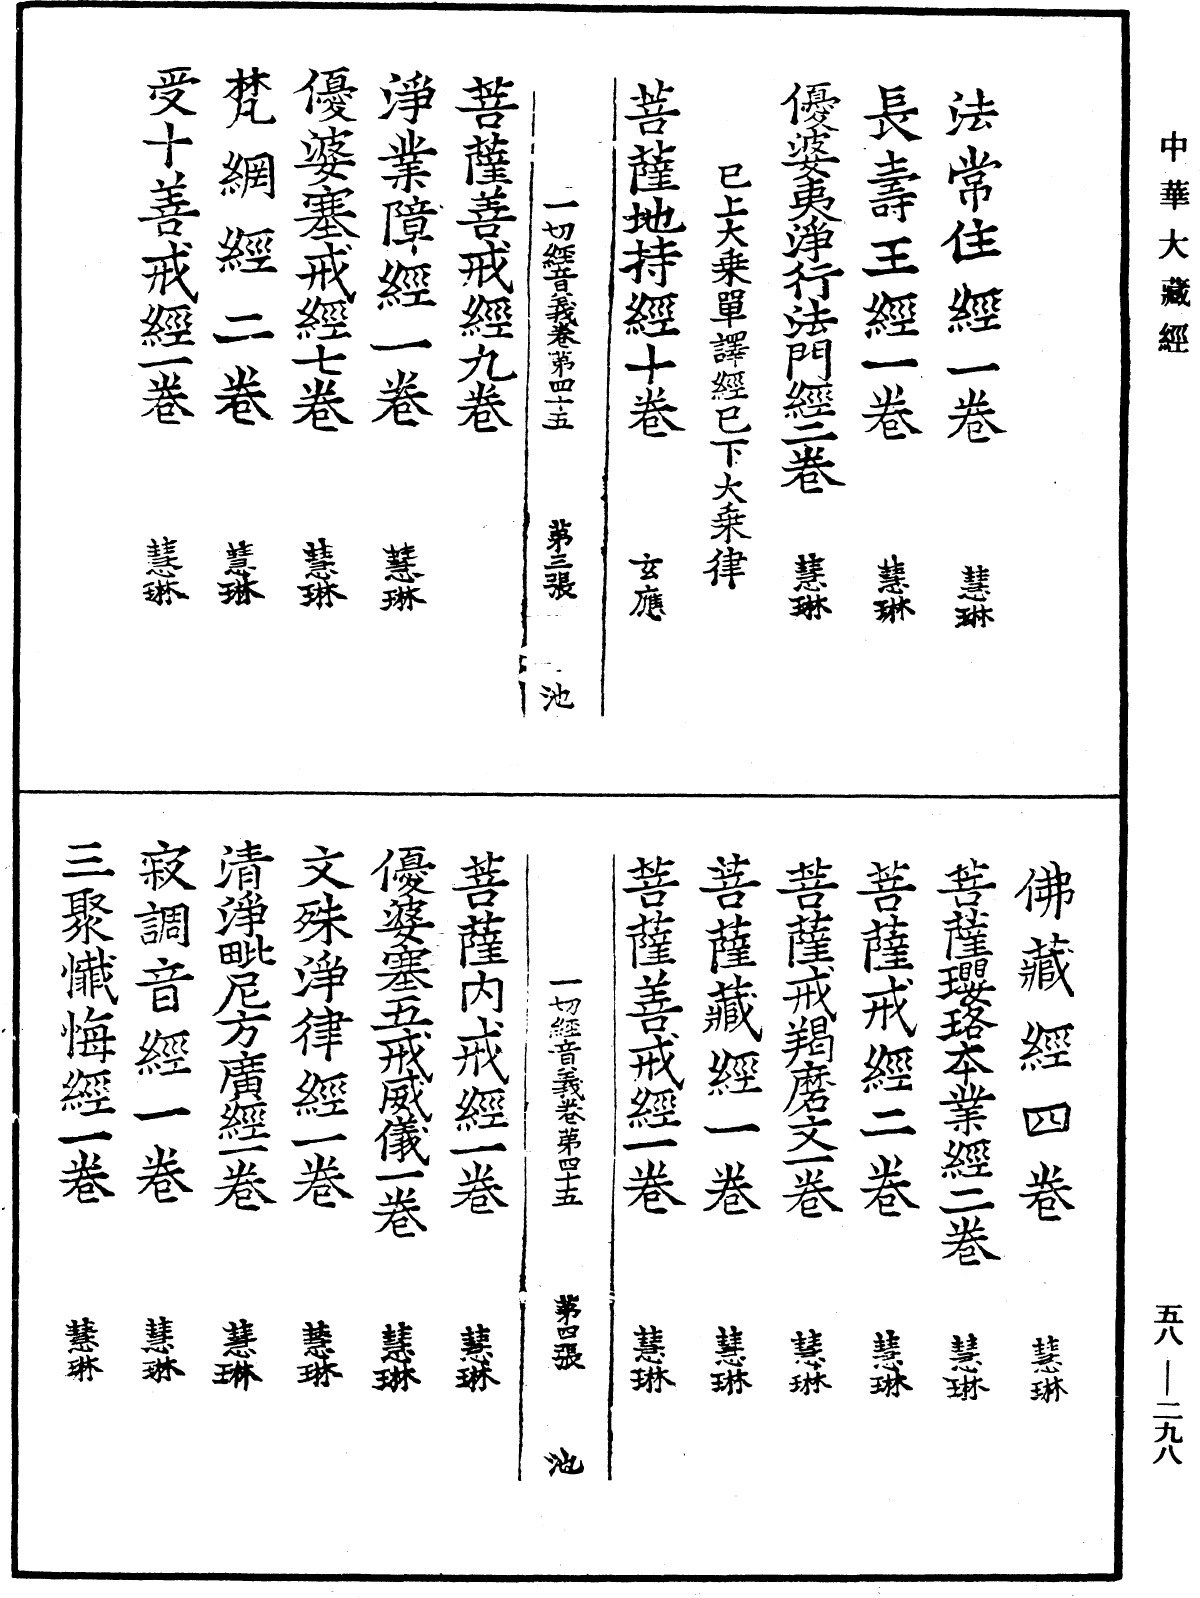 中華大藏經
法常住經一卷 慧琳
長壽王經一卷 慧琳
優婆夷淨行法門經二卷 慧琳
已上大乘單譯經已下大乘律
菩薩地持經十卷 玄應
一切經音義卷第四十五 第三張 池
菩薩善戒經九卷
淨業障經一卷 慧琳
優婆塞戒經七卷 慧琳
梵網經二卷 慧琳
受十善戒經一卷 慧琳
佛藏經四卷 慧琳
菩薩瓔珞本業經二卷 慧琳
菩薩戒經二卷 慧琳
菩薩戒羯磨文一卷 慧琳
菩薩藏經一卷 慧琳
菩薩善戒經一卷 慧琳
一切經音義卷第四十五 第四張 池
菩薩內戒經一卷 慧琳
優婆塞五戒威儀一卷 慧琳
文殊淨律經一卷 慧琳
清淨毗尼方廣經一卷 慧琳
寂調音經一卷 慧琳
三聚懺悔經一卷 慧琳
五八—二九八